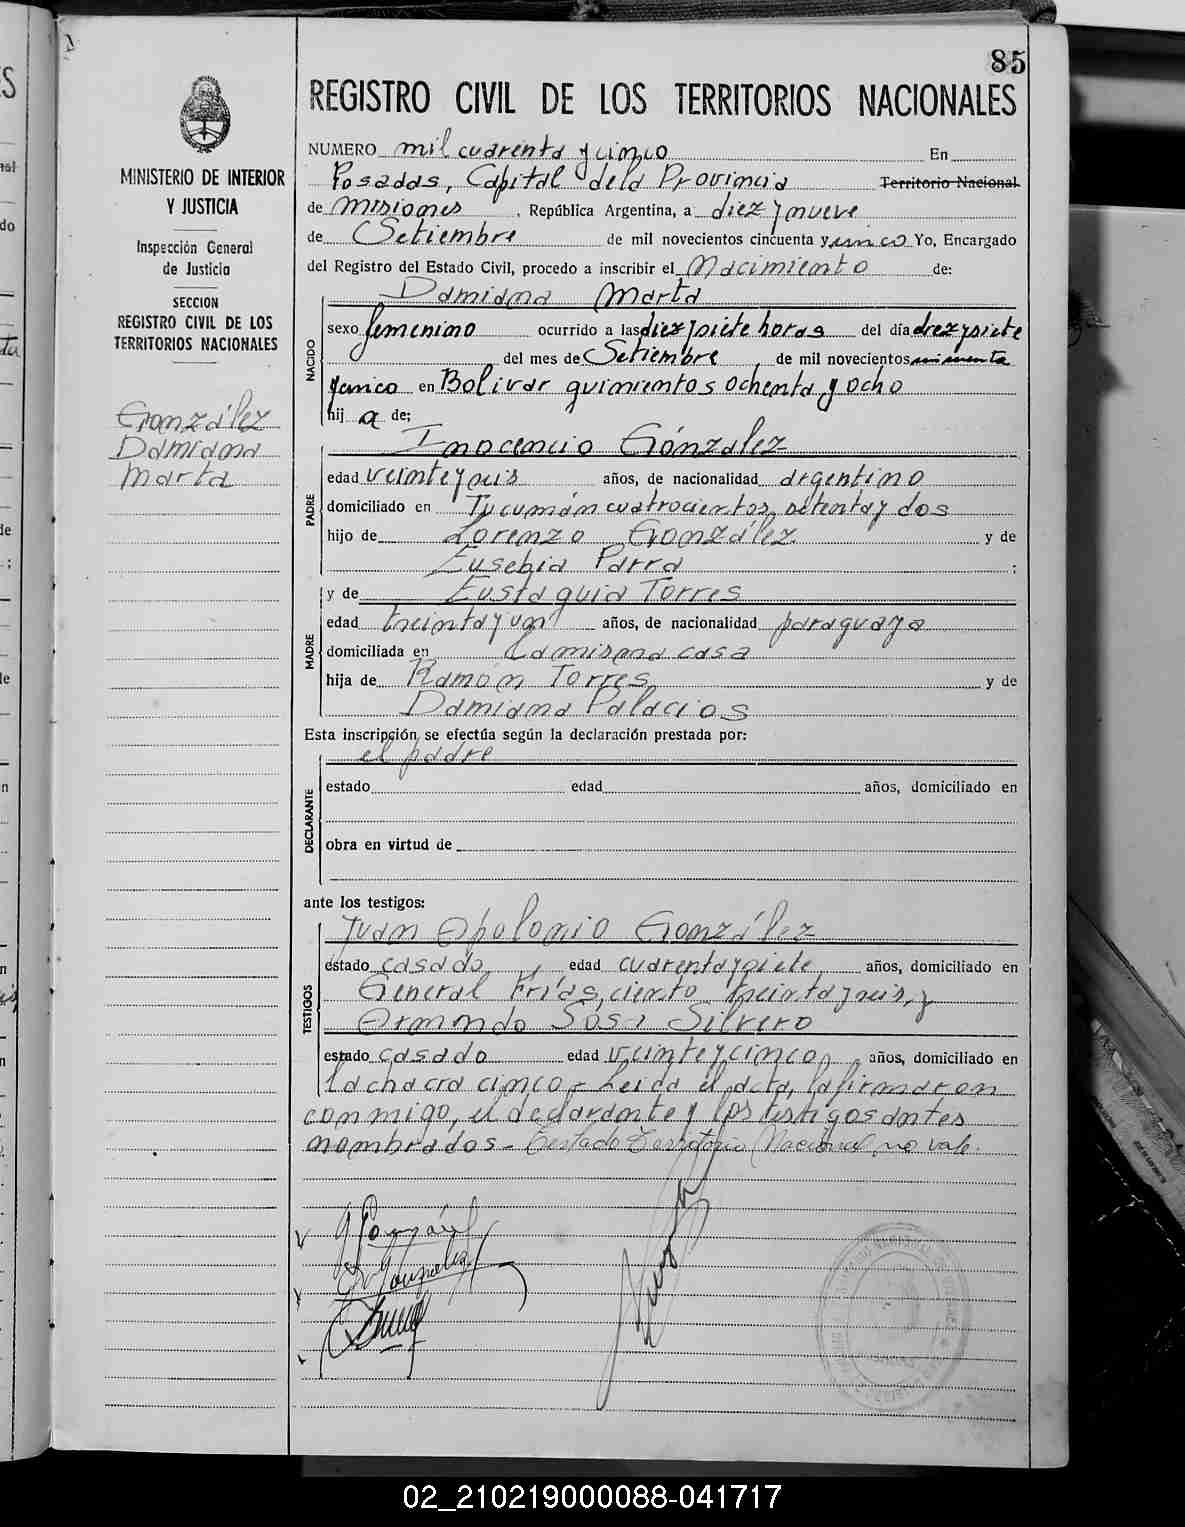 85
REGISTRO CIVIL DE LOS TERRITORIOS NACIONALES
MINISTERIO DE INTERIOR
Y JUSTICIA
Inspección General
de Justicia
SECCION
REGISTRO CIVIL DE LOS
TERRITORIOS NACIONALES
González
Damiana
Marta
NUMERO mil cuarenta y cinco En
Posadas, Capital de la Provincia Territorio Nacional
de Misiones, República Argentina, a diez y nueve
de Setiembre de mil novecientos cincuenta y cinco Yo, Encargado
del Registro del Estado Civil, procedo a inscribir el Nacimiento de:
Damiana Marta
NACIDO
sexo femenino ocurrido a las diez y siete horas del día diez y siete
del mes de Setiembre de mil novecientos cincuenta
y cinco en Bolivar quinientos ochenta y ocho
hij a de;
Inocencio Gónzalez
PADRE
edad veinte y seis años, de nacionalidad argentino
domiciliado en Tucumán cuatrocientos setenta y dos
hijo de Lorenzo González y de
Eusebia Parra ;
y de Eustaquia Torres
MADRE
edad treinta y un años, de nacionalidad paraguaya
domiciliada en la misma casa
hija de Ramón Torres y de
Damiana Palacios
Esta inscripción se efectúa según la declaración prestada por:
el padre
DECLARANTE
estado edad años, domiciliado en
obra en virtud de
ante los testigos:
Juan Apolonio González
TESTIGOS
estado casado, edad cuarenta y siete años, domiciliado en
General Frías, ciento treinta y seis, y
Armando Sosa Silvero
estado casado edad veinte y cinco, años, domiciliado en
la chacra cinco - Leida el acta, la firmaron
conmigo, el declarante y los testigos antes
nombrados - Testado Territorio Nacional, no vale.
02_210219000088-041717